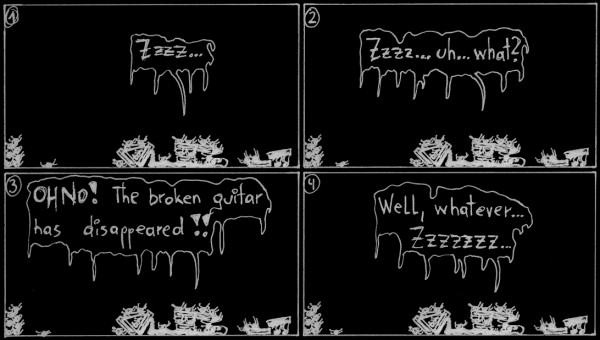 1
Zzzz...
2
Zzzz... uh... what?
3
OH NO! The broken guitar
has disappeared!!
4
Well, whatever...
Zzzzzzz...